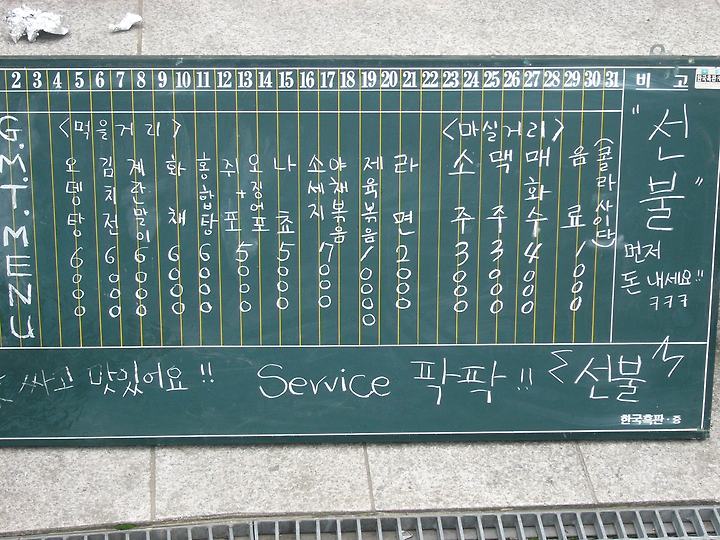 2 3 4 5 6 7 8 9 10 11 12 13 14 15 16 17 18 19 20 21 22 23 24 25 26 27 28 29 30 31 비 고
G.M.T. MENU
<먹을거리>
오뎅탕 6000
김치전 6000
계란말이 6000
화채 6000
홍합탕 6000
쥐포+오징어포 5000
나쵸 5000
소세지야채볶음 7000
제육볶음 10000
라면 2000
<마실거리>
소주 3000
맥주 3000
매화수 4000
음료 1000
(콜라사이다)
"선불"
먼저
돈 내세요!!
ㅋㅋㅋ
싸고 맛있어요!! Service 팍팍!! 선불
한국흑판·중